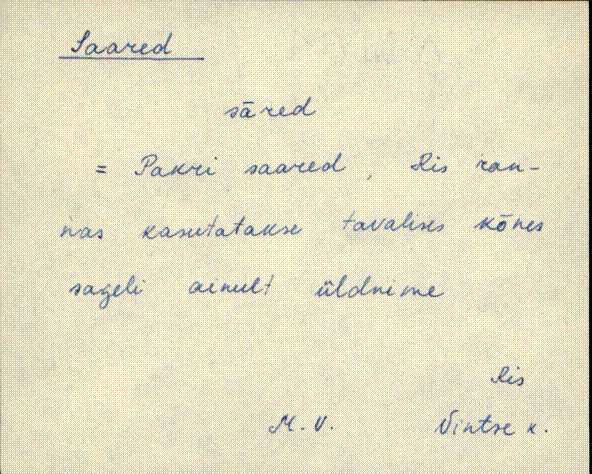 Saared
sāred
= Pakri saared, Ris ran-
nas kasutatakse tavalises kõnes
sageli ainult üldnime
Ris
M. V. Vintse k.